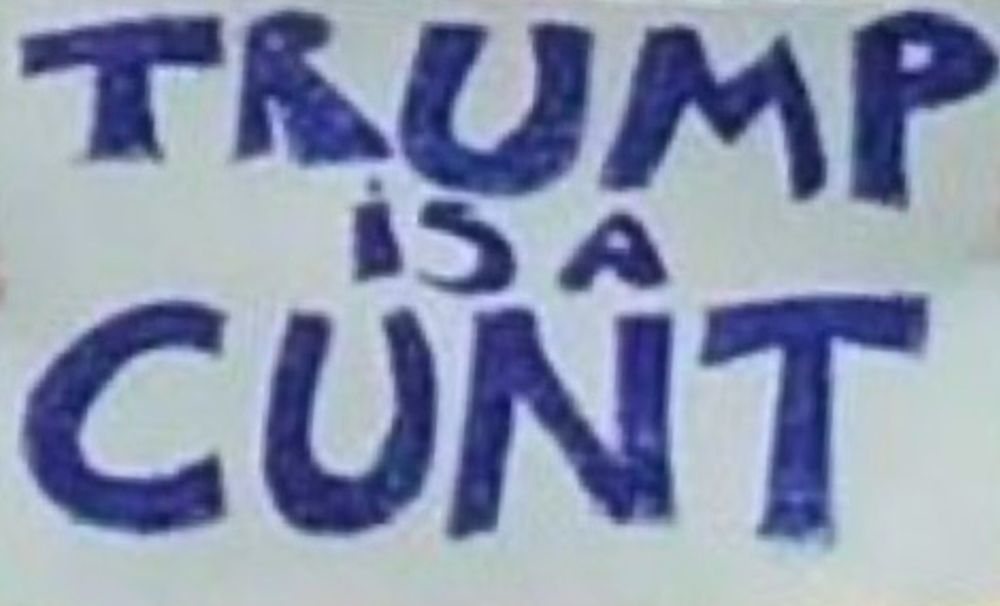 TRUMP
is A
CUNT